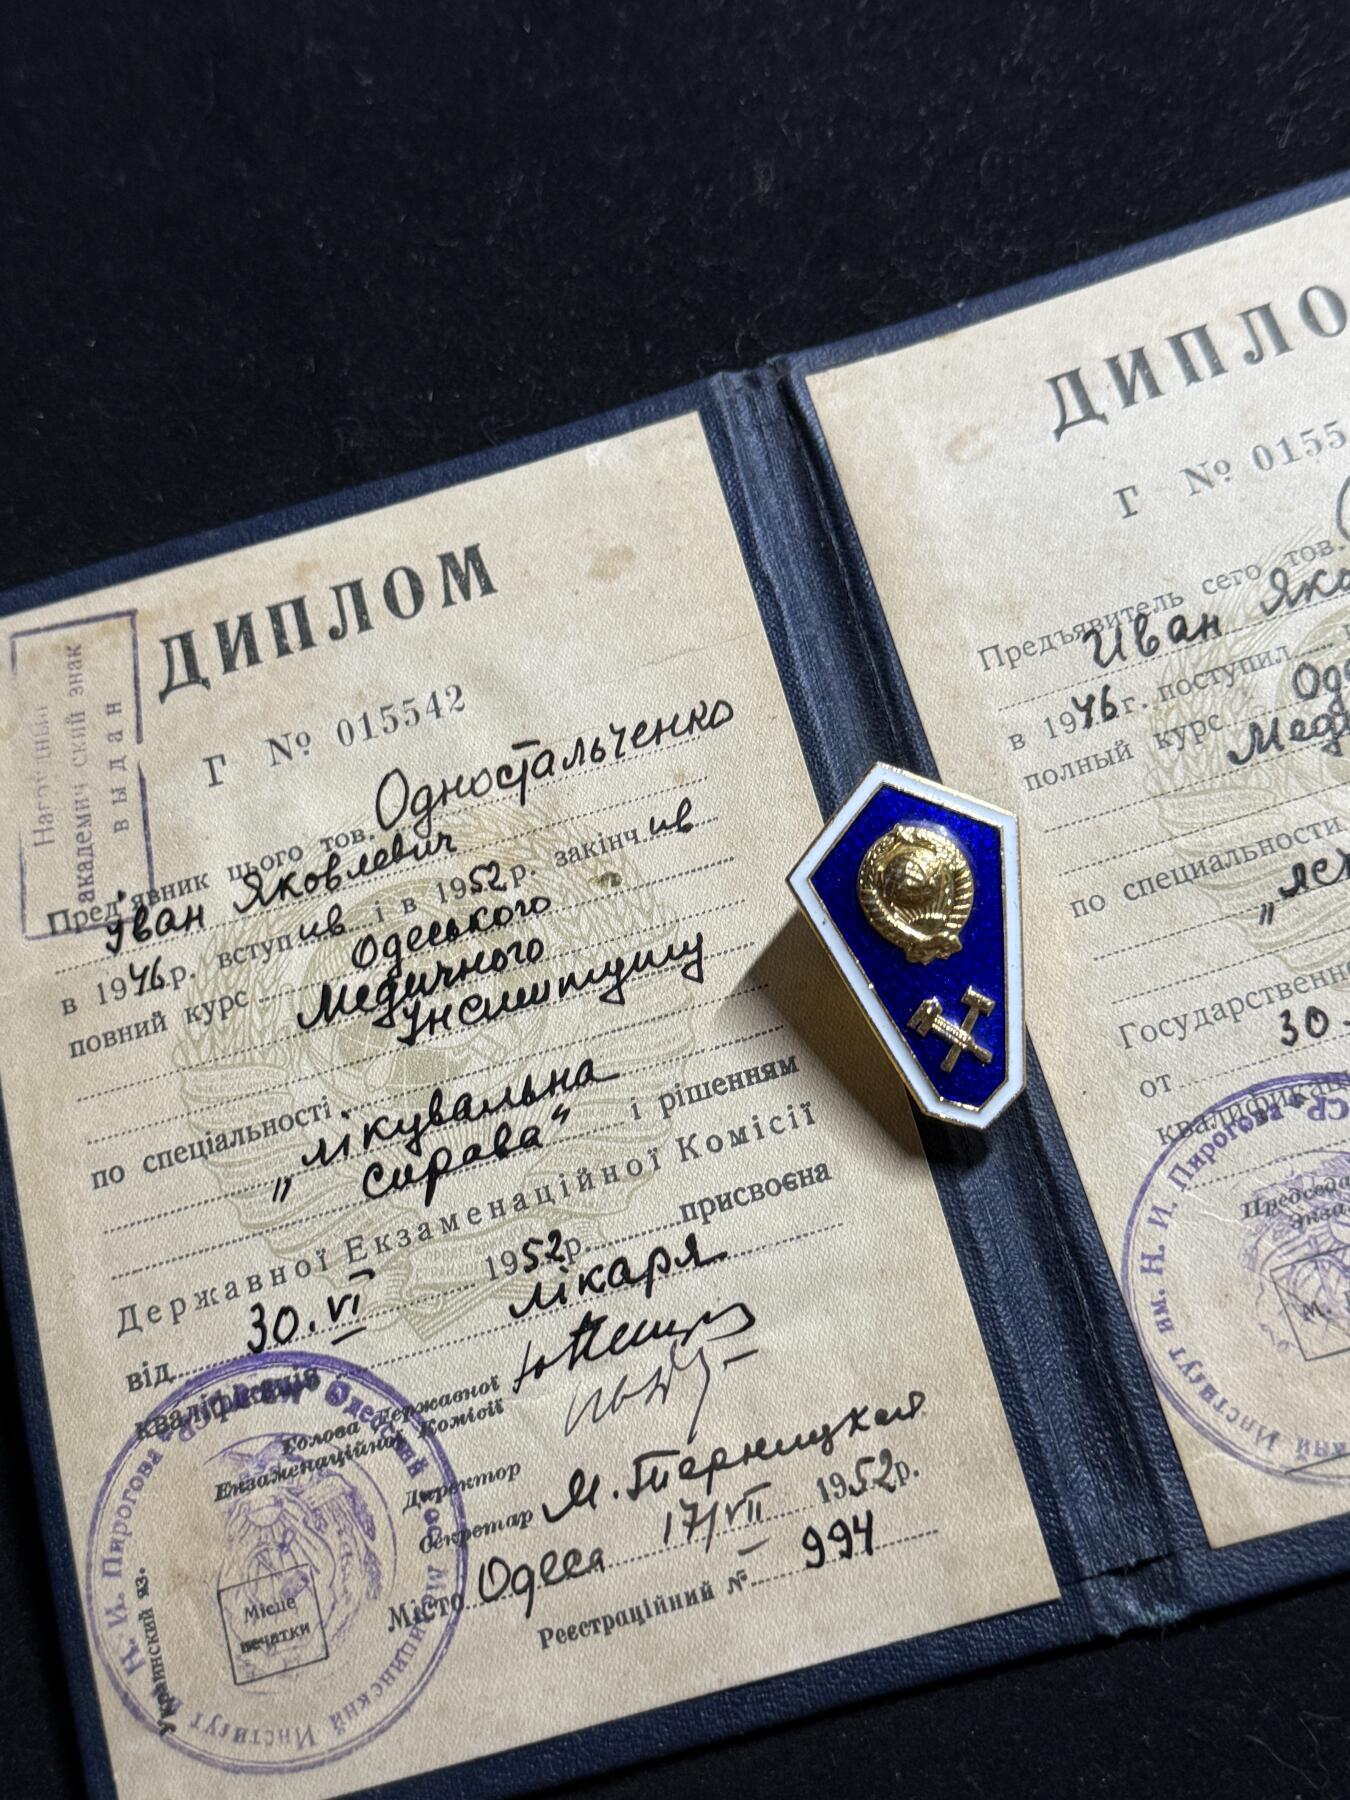 Нагрудный
академический знак
выдан
ДИПЛОМ
Г № 015542
Пред'явник цього тов. Одностальченко
Іван Яковлевич
в 1946 р. вступив і в 1952 р. закінчив
повний курс Одеського
Медичного
Інституту
по спеціальності
„лікувальна
справа“ і рішенням
Державної Екзаменаційної Комісії
від 30.VI 1952 р. присвоєна
кваліфікація лікаря
Голова Державної
Екзаменаційної Комісії
Директор
Секретар
Місто Одеса 17/VII 1952 р.
Реєстраційний № 994
Місце
печатки
Украинский яз.
Одесский Гос. Медицинский Институт им. Н. И. Пирогова
ДИПЛО
Г № 0155
Предъявитель сего тов.
Иван Яко
в 1946 г. поступил
полный курс Оде
Меди
по специальности
Государственн
от 30.
квалифика
Председа
М.
Институт им. Н. И. Пирогова